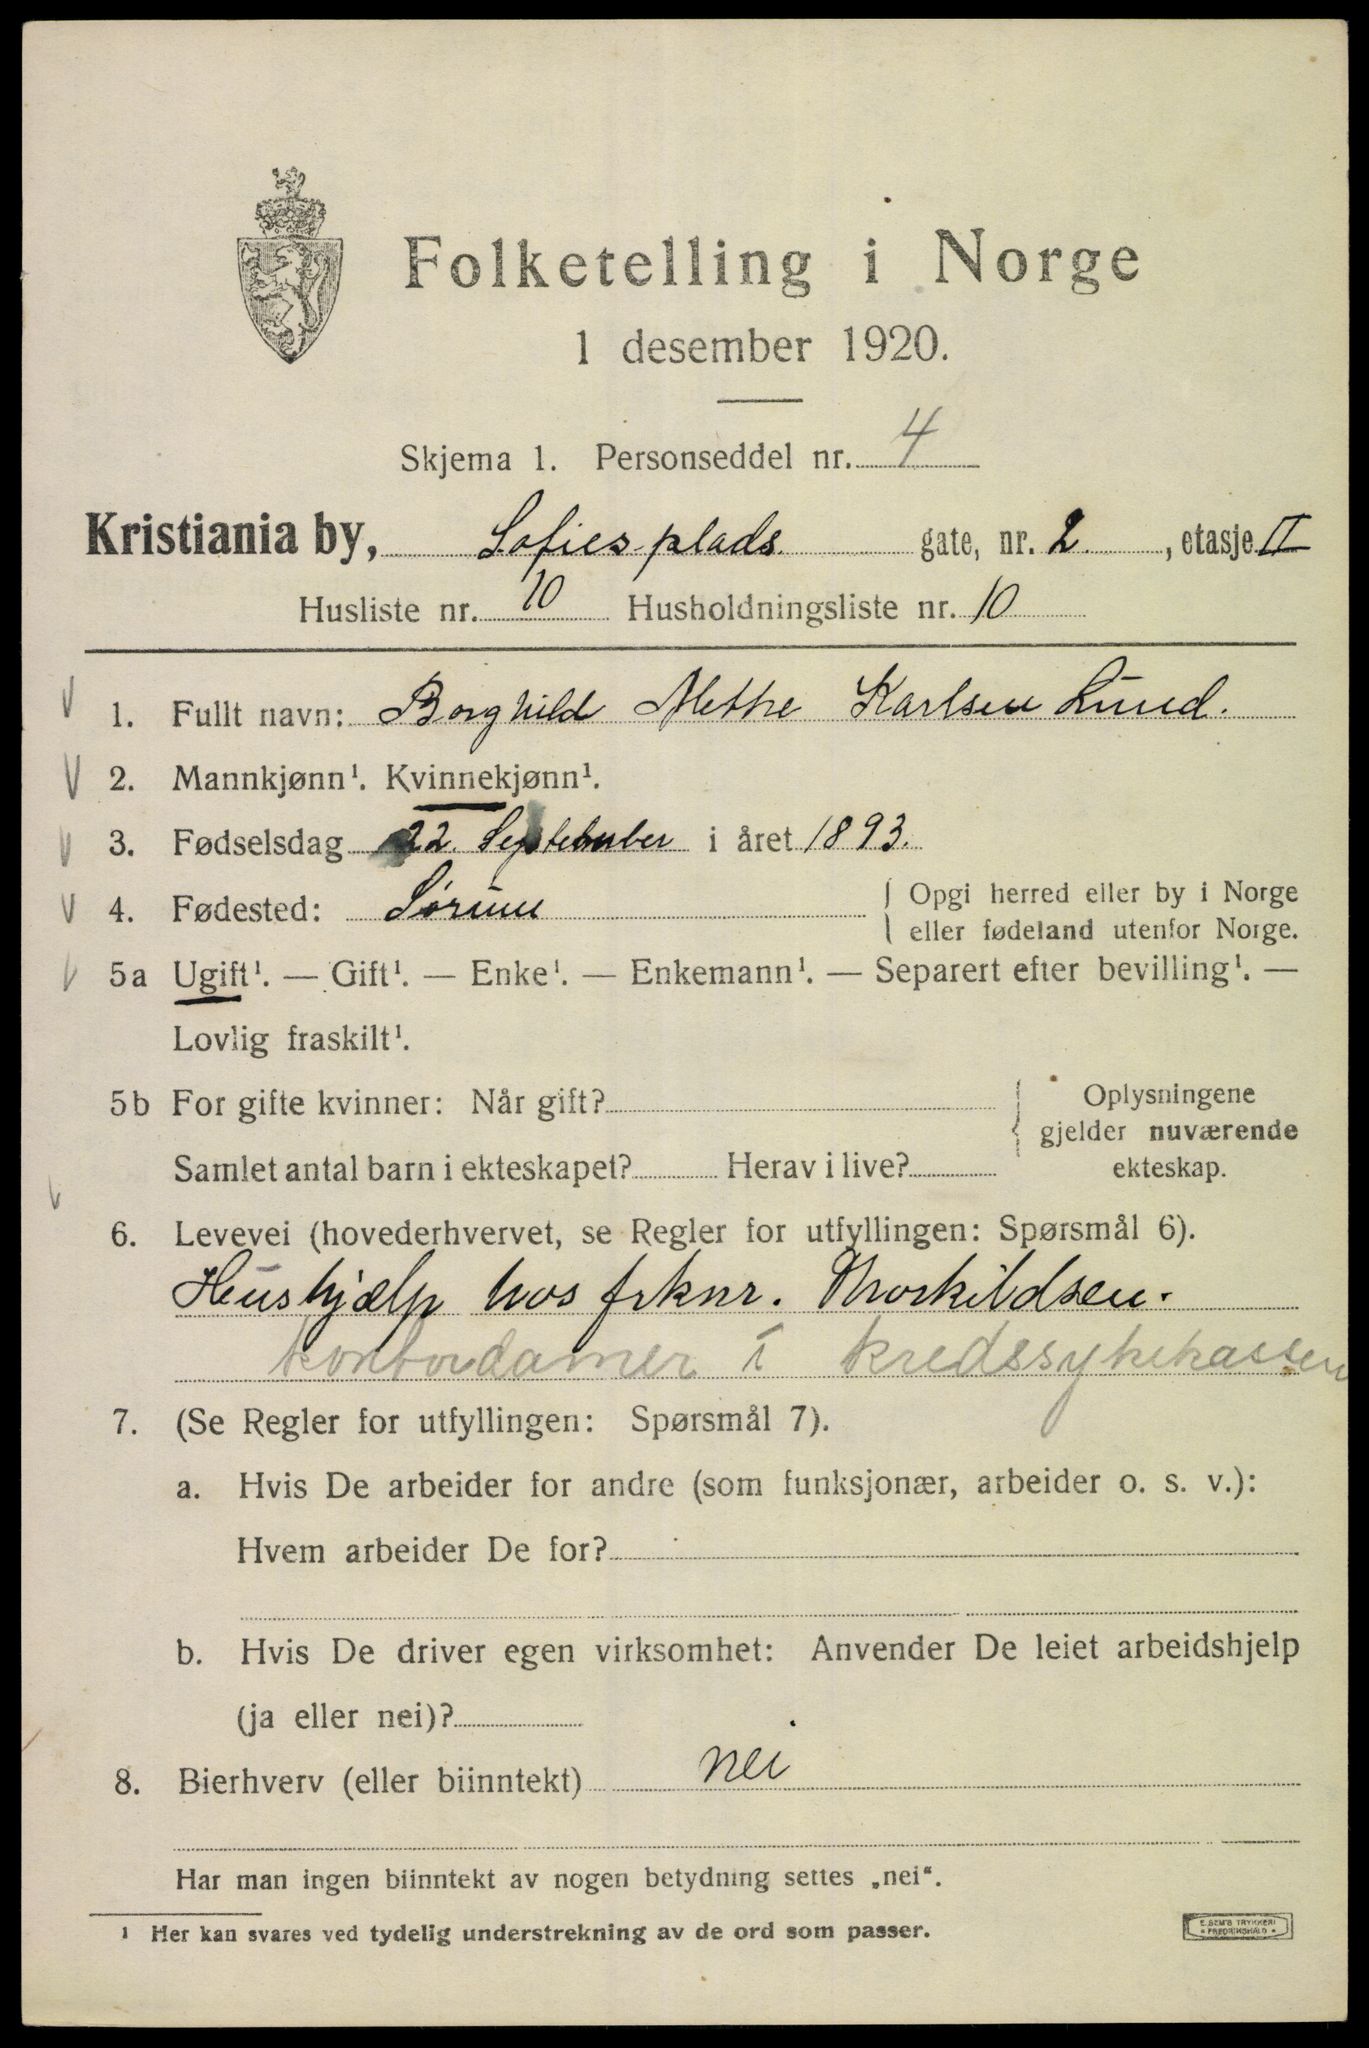 Folketelling i Norge
1 desember 1920.
Skjema 1. Personseddel nr. 4
Kristiania by, Sofies plads gate, nr. 2, etasje II
Husliste nr. 10 Husholdningsliste nr. 10
1. Fullt navn: Borghild Methe Karlsen Lund.
2. Mannkjønn¹. Kvinnekjønn¹.
3. Fødselsdag 22. September i året 1893.
4. Fødested: Sørum { Opgi herred eller by i Norge
eller fødeland utenfor Norge.
5a Ugift¹. — Gift¹. — Enke¹. — Enkemann¹. — Separert efter bevilling¹. —
Lovlig fraskilt¹.
5b For gifte kvinner: Når gift? { Oplysningene
gjelder nuværende
Samlet antal barn i ekteskapet? Herav i live? ekteskap.
6. Levevei (hovederhvervet, se Regler for utfyllingen: Spørsmål 6).
Hushjælp hos frknr. Thorkildsen.
kontordamer i kredssykekassen
7. (Se Regler for utfyllingen: Spørsmål 7).
a. Hvis De arbeider for andre (som funksjonær, arbeider o. s. v.):
Hvem arbeider De for?
b. Hvis De driver egen virksomhet: Anvender De leiet arbeidshjelp
(ja eller nei)?
8. Bierhverv (eller biinntekt) nei
Har man ingen biinntekt av nogen betydning settes „nei“.
¹ Her kan svares ved tydelig understrekning av de ord som passer.
E. SEM'S TRYKKERI
FREDRIKSHALD